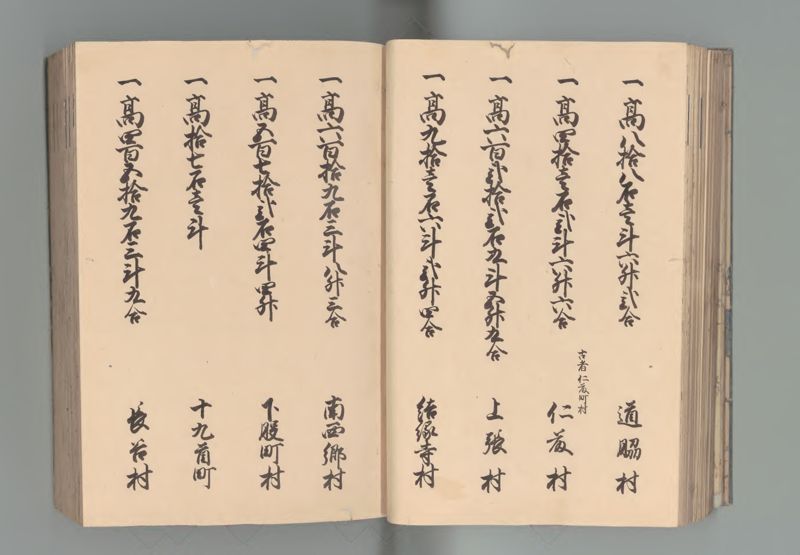 一高八拾八石壱斗六升弐合 道脇村
一高四拾壱石弐斗六升六合 仁藤村
古者仁藤町村
一高六百弐拾弐石九斗五升九合 上張村
一高九拾壱石六斗弐升四合 結縁寺村
一高六百拾九石三斗八升三合 南西郷村
一高五百七拾弐石四斗四升 下股町村
一高拾七石壱斗 十九首町
一高四百五拾九石三斗九合 長谷村